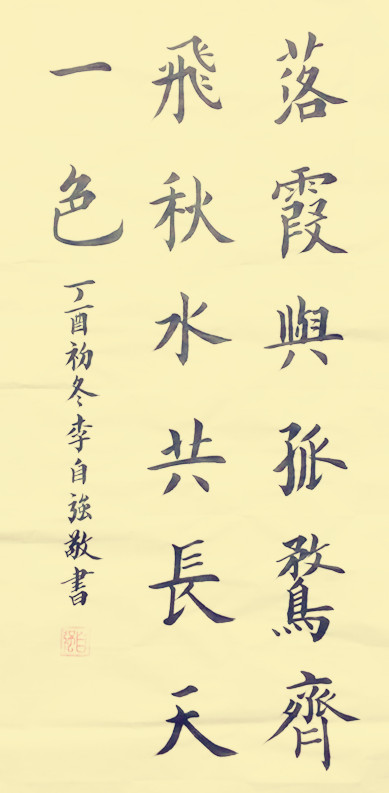 落霞與孤鶩齊
飛秋水共長天
一色
丁酉初冬李自強敬書